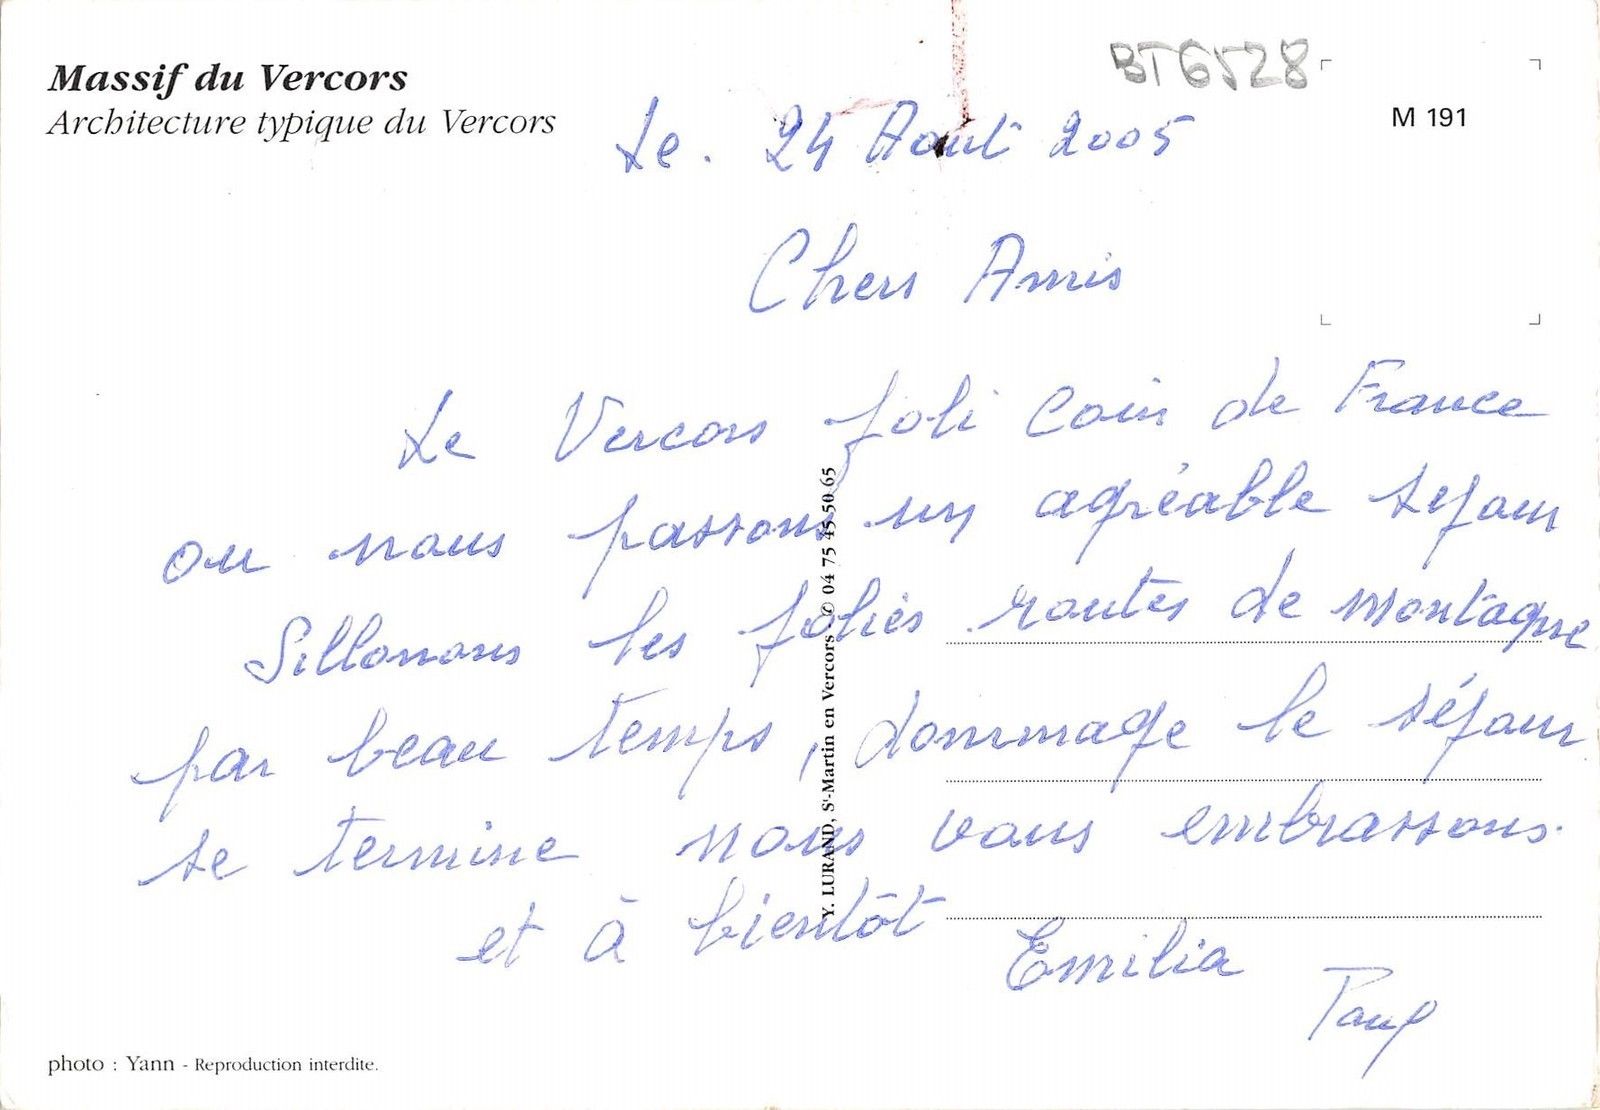 Massif du Vercors
Architecture typique du Vercors
BT6528
M 191
Le. 24 Août 2005
Chers Amis
Le Vercors Joli Coin de France
ou nous passons un agréable sejour
Sillonons les jolies routes de montagne
par beau temps, dommage le séjour
se termine nous vous embrassons.
et à bientôt
Emilia
Paul
Y. LURAND, St-Martin en Vercors - ✆ 04 75 45 50 65
photo : Yann - Reproduction interdite.